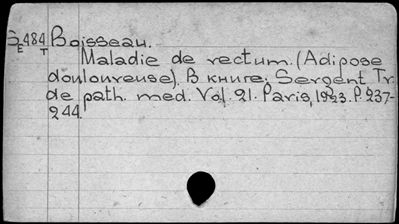 SE484T Boisseau.
Maladie de rectum. (Adipose
douloureuse). В книге: Sergent Tr.
de path. med. Vol. 21. Paris, 1923. P. 237-
244.